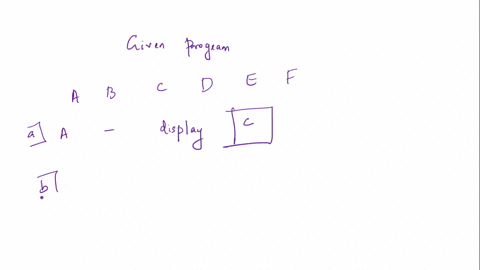 Given program
A B C D E F
a] A - display C
b]